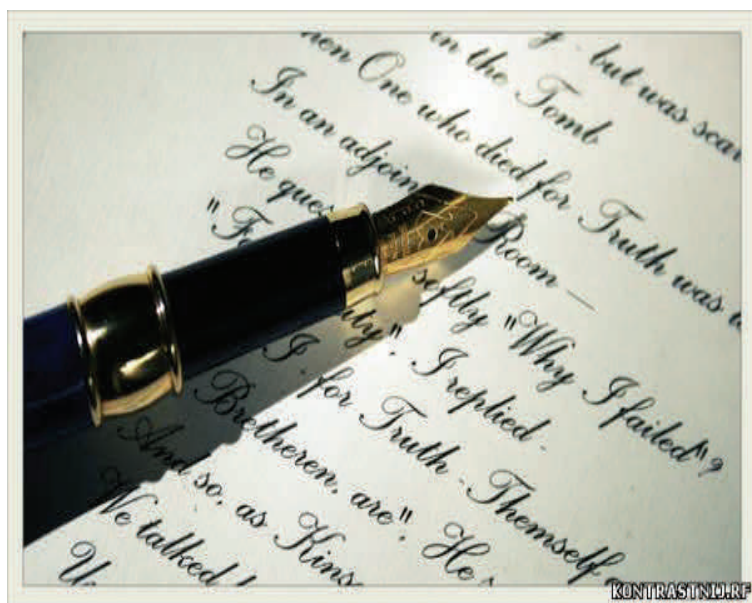 but was scar
in the Tomb
hen One who died for Truth was
In an adjoin Room —
He ques softly "Why I failed"?
"Fo ity", I replied -
I - for Truth - Themself
Bretheren, are", He
And so, as Kins
We talked
KONTRASTNIJ.RF